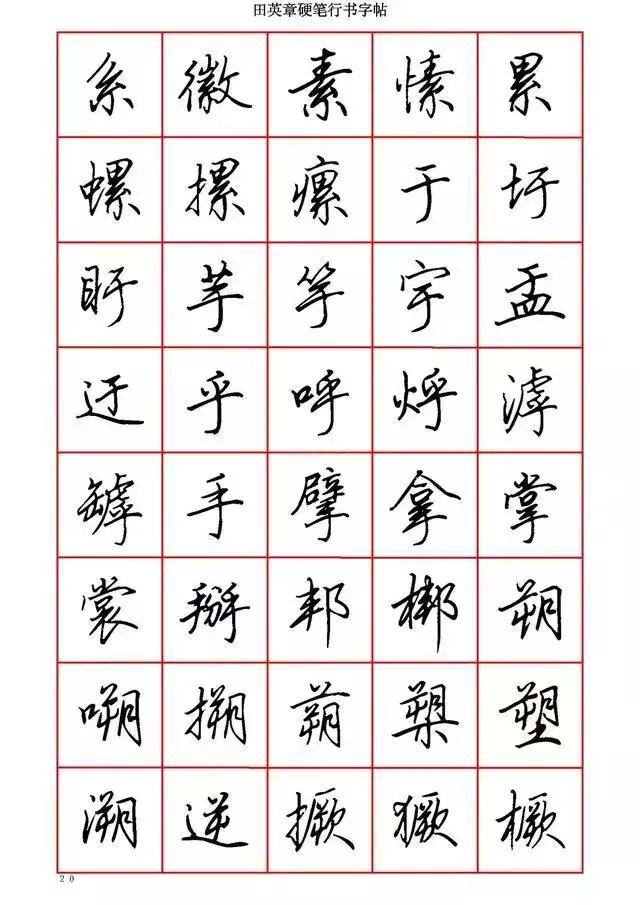 田英章硬笔行书字帖
系徽素愫累
螺摞瘰于圩
盱芋竽宇盂
迂乎呼烀滹
罅手擘拿掌
裳掰邦梆朔
嗍搠蒴槊塑
溯逆撅獗橛
20